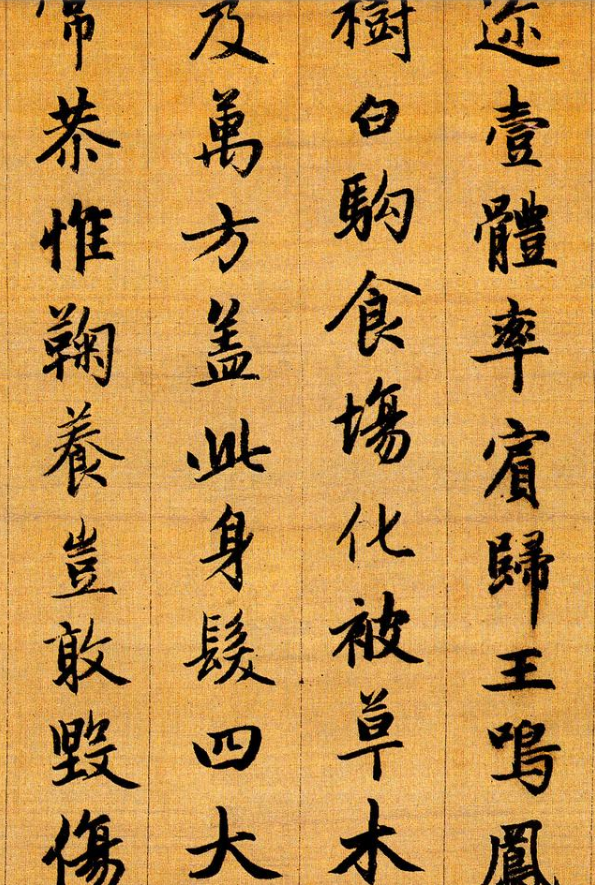 迩壹體率賓歸王鳴鳳
樹白駒食塲化被草木
及萬方盖此身髮四大
常恭惟鞠養豈敢毀傷